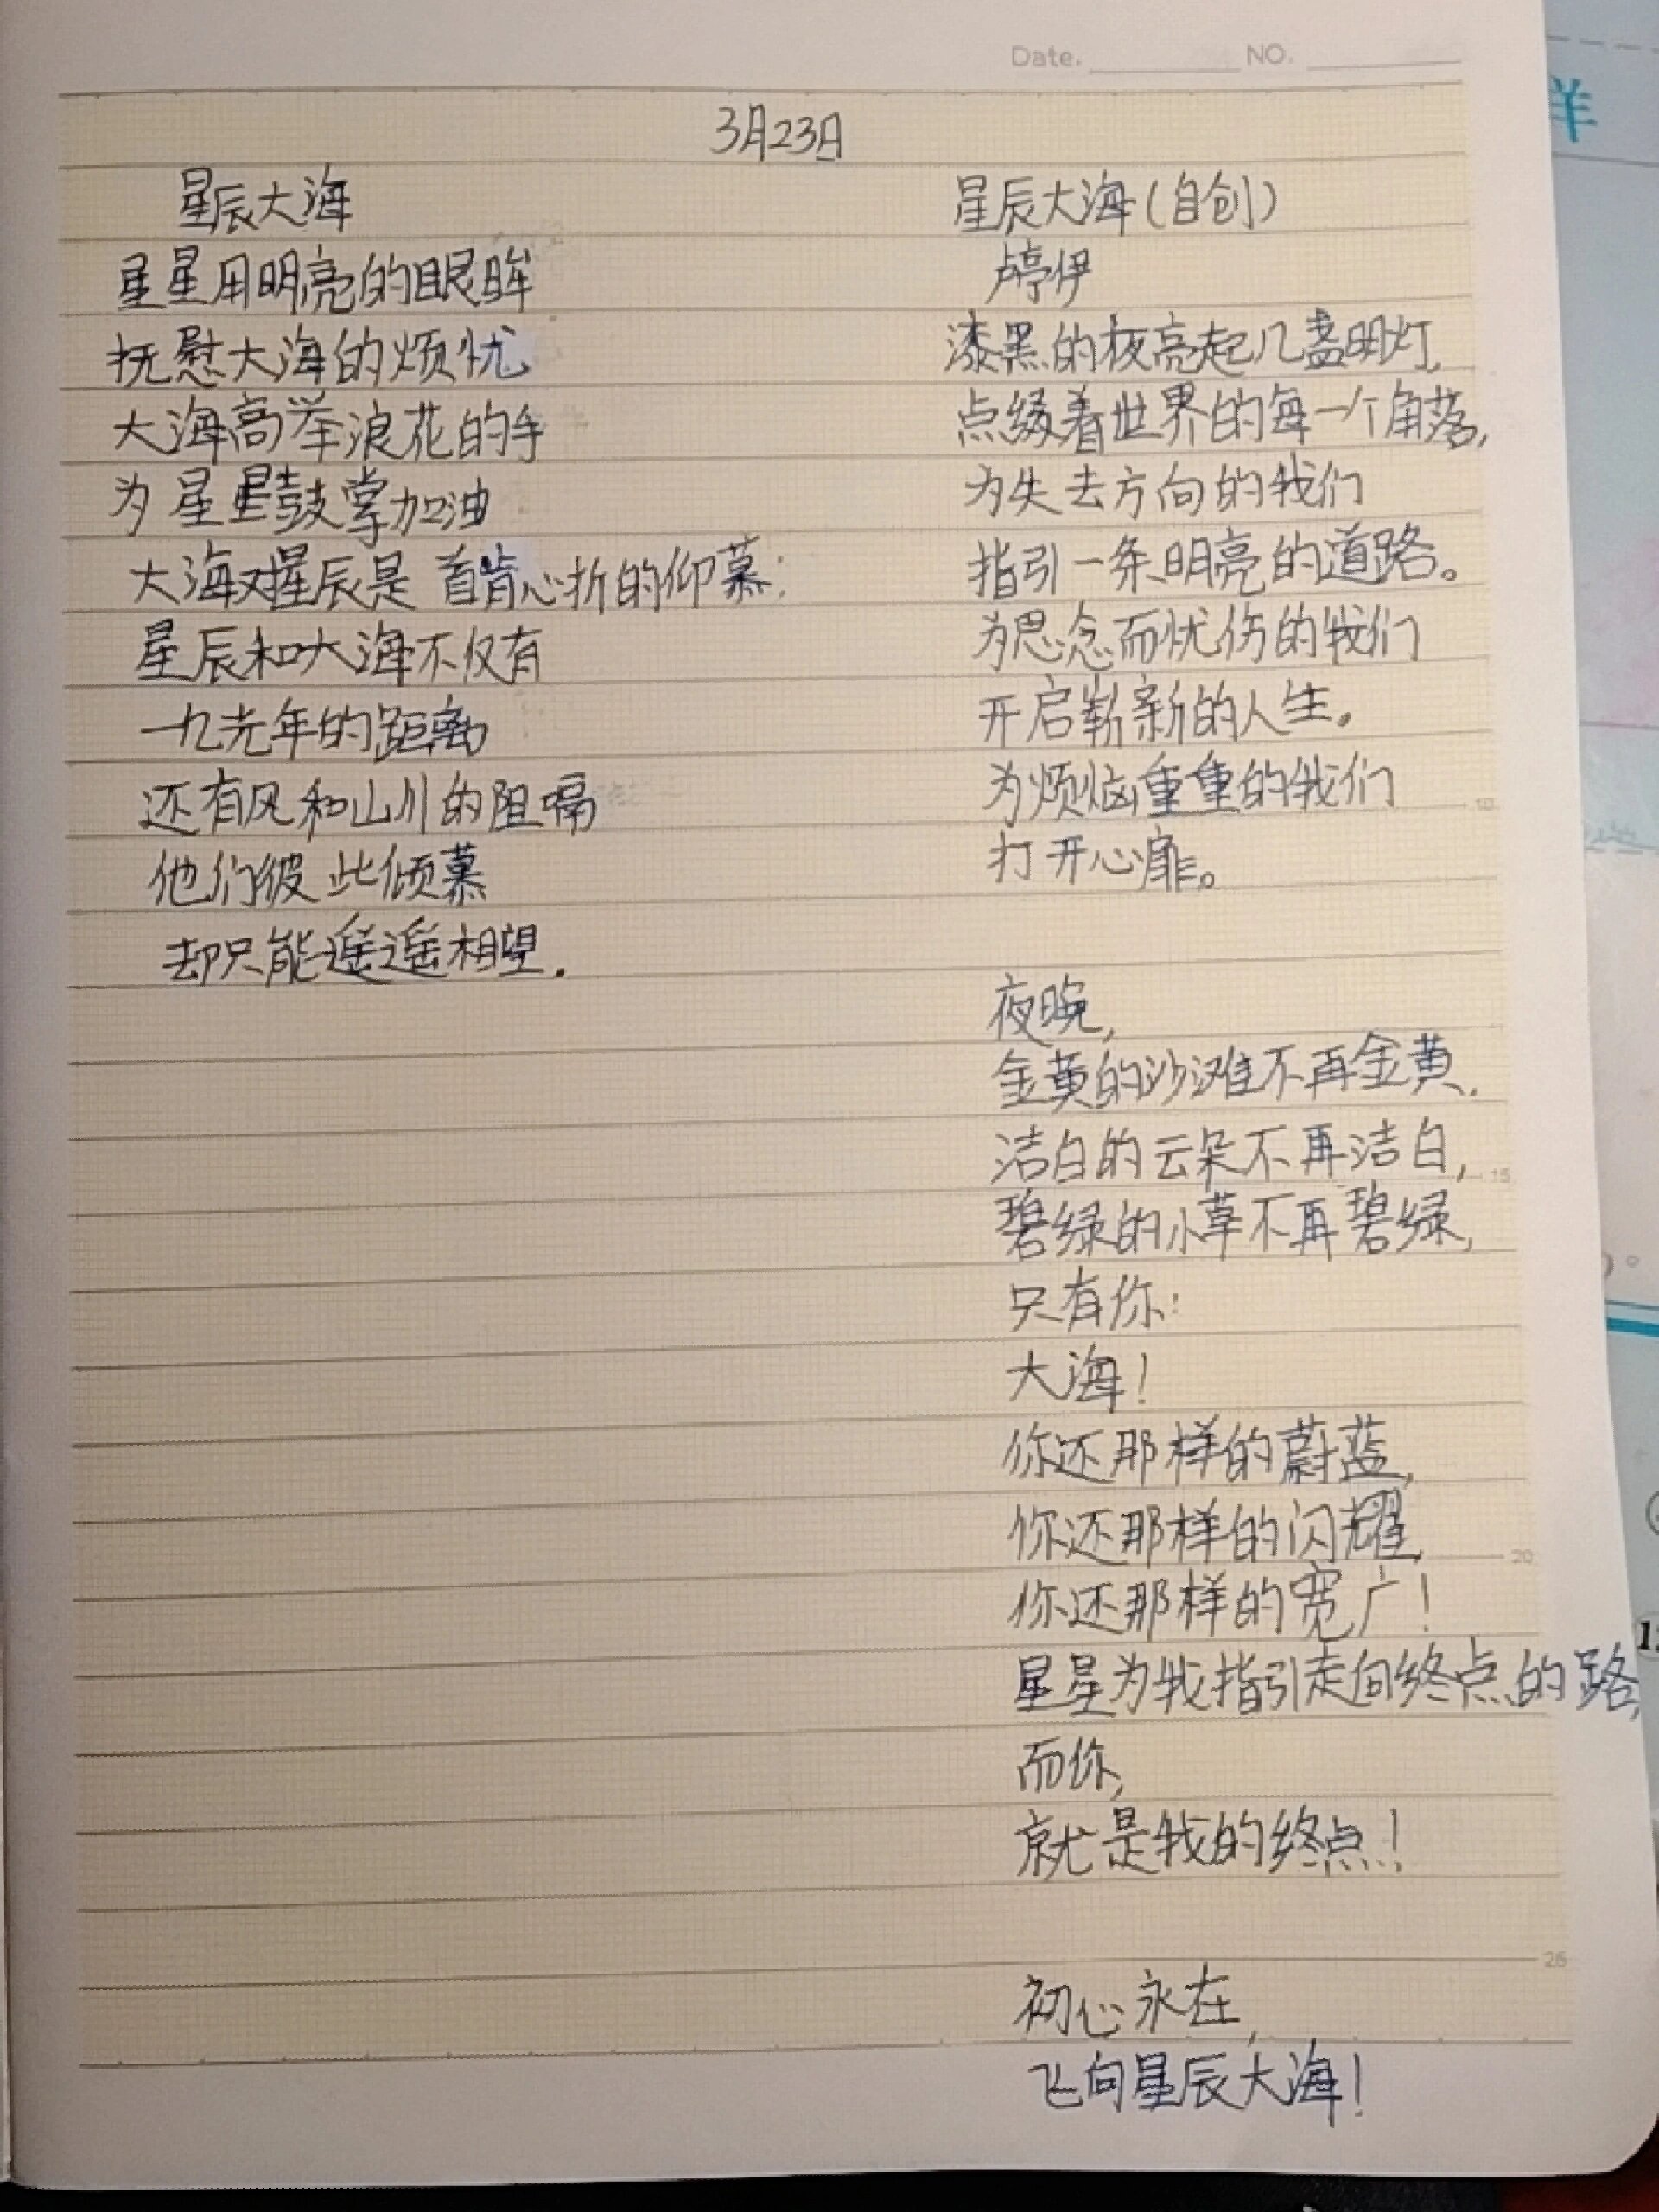 Date. NO.
3月23日
星辰大海
星星用明亮的眼眸
抚慰大海的烦忧
大海高举浪花的手
为星星鼓掌加油
大海对星辰是首肯心折的仰慕:
星辰和大海不仅有
一九光年的距离
还有风和山川的阻嗝
他们彼此倾慕
却只能遥遥相望.
星辰大海(自创)
卢婷伊
漆黑的夜亮起几盏明灯,
点缀着世界的每一个角落,
为失去方向的我们
指引一条明亮的道路。
为思念而忧伤的我们
开启崭新的人生。
为烦恼重重的我们
打开心扉。
夜晚,
金黄的沙滩不再金黄,
洁白的云朵不再洁白,
碧绿的小草不再碧绿,
只有你:
大海!
你还那样的蔚蓝,
你还那样的闪耀,
你还那样的宽广!
星星为我指引走向终点的路,
而你,
就是我的终点!
初心永在,
飞向星辰大海!
10
15
20
25
羊